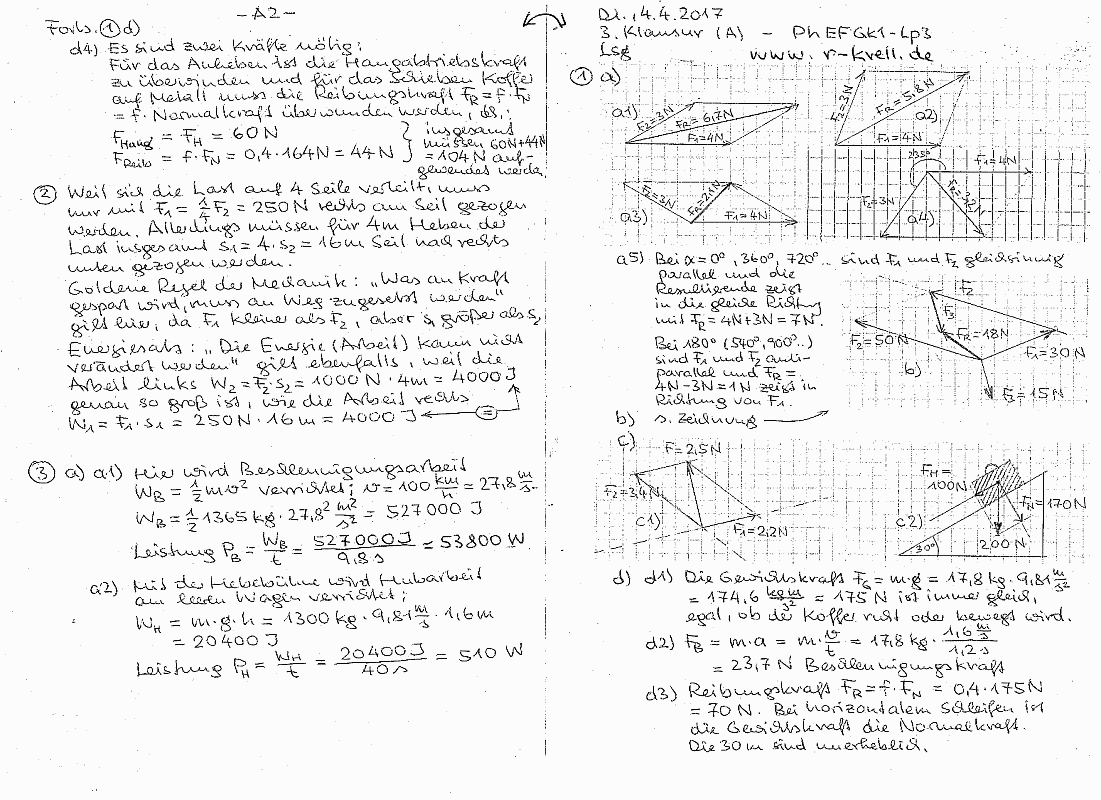 - A2 -
Forts. ① d)
d4) Es sind zwei Kräfte nötig:
Für das Anheben ist die Hangabtriebskraft
zu überwinden und für das Schieben Koffer
auf Metall muss die Reibungskraft F_R = f · F_N
= f · Normalkraft überwunden werden, d.s.:
F_Hang = F_H = 60 N
F_Reib = f · F_N = 0,4 · 164 N = 44 N
} insgesamt
müssen 60N+44N
= 104 N auf-
gewendet werden.
② Weil sich die Last auf 4 Seile verteilt, muss
nur mit F₁ = 1/4 F₂ = 250 N rechts am Seil gezogen
werden. Allerdings müssen für 4m Heben der
Last insgesamt s₁ = 4 · s₂ = 16 m Seil nach rechts
unten gezogen werden.
Goldene Regel der Mechanik: „Was an Kraft
gespart wird, muss an Weg zugesetzt werden"
gilt hier, da F₁ kleiner als F₂, aber s₁ größer als s₂
Energiesatz: „Die Energie (Arbeit) kann nicht
verändert werden" gilt ebenfalls, weil die
Arbeit links W₂ = F₂ · s₂ = 1000 N · 4m = 4000 J
genau so groß ist, wie die Arbeit rechts
W₁ = F₁ · s₁ = 250 N · 16 m = 4000 J ⟵ =
③ a) a1) Hier wird Beschleunigungsarbeit
W_B = 1/2 m v² verrichtet; v = 100 km/h = 27,8 m/s
W_B = 1/2 1365 kg · 27,8² m²/s² = 527000 J
Leistung P_B = W_B/t = 527000 J/9,8 s = 53800 W
a2) Mit der Hebebühne wird Hubarbeit
am leeren Wagen verrichtet:
W_H = m · g · h = 1300 kg · 9,81 m/s² · 1,6 m
= 20400 J
Leistung P_H = W_H/t = 20400 J/40 s = 510 W
Di., 4.4.2017
3. Klausur (A) - Ph EF GK1 - Lp3
Lsg www.r-krell.de
① a)
a1) F₂=3N F_R=6,7N F₁=4N
a2) F₂=3N F_R=5,8N F₁=4N
a3) F₂=3N F_R=2,1N F₁=4N
a4) 235° F₁=4N F₂=3N
a5) Bei α = 0°, 360°, 720° .. sind F₁ und F₂ gleichsinnig
parallel und die
Resultierende zeigt
in die gleiche Richtung
mit F_R = 4N+3N = 7N.
Bei 180° (540°, 900°..)
sind F₁ und F₂ anti-
parallel und F_R =
4N-3N = 1N zeigt in
Richtung von F₁.
b) s. Zeichnung ⟶
F₂
F₃
F₂=50N F_R=18N
F₁=30N
b)
F₃=15N
c)
F=2,5N
F₂=3,4N
c1) F₁=2,2N
F_H=
100N
F_N=170N
c2)
30° 200 N
d) d1) Die Gewichtskraft F_G = m · g = 17,8 kg · 9,81 m/s²
= 174,6 kg m/s² = 175 N ist immer gleich,
egal, ob der Koffer ruht oder bewegt wird.
d2) F_B = m · a = m · v/t = 17,8 kg · 1,6 m/s/1,2 s
= 23,7 N Beschleunigungskraft
d3) Reibungskraft F_R = f · F_N = 0,4 · 175N
= 70 N. Bei horizontalem Schleifen ist
die Gewichtskraft die Normalkraft.
Die 30 m sind unerheblich.